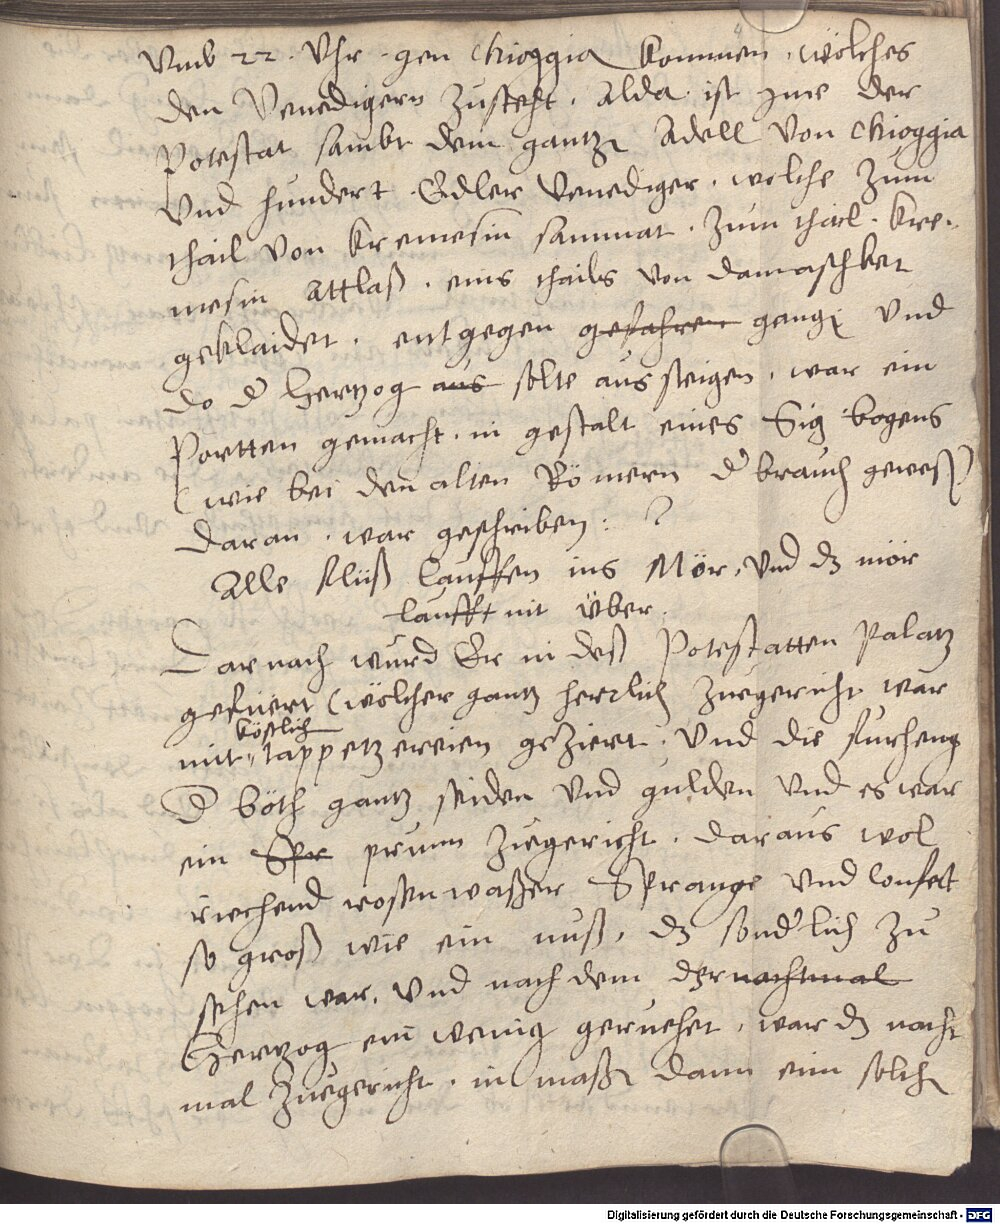 Umb 22. Uhr. gen Chioggia kommen. wölches
den Venedigern zusteht. Alda ist ime der
Potestat sambt dem gantzn Adell von Chioggia
Und hundert. Edler Venediger. wölche zum
thail von kremesin sammat. zum thail. kre-
mesin Attlaß. eins thails von damaschket
geklaidet. entgegen gefahren gangn Und
do d' Hertzog aus solte aussteigen. war ein
Portten gemacht. in gestalt eines Sig bogens
(wie bei den alten Römern d' brauch geweß)
daran. war geschriben:
Alle fluß lauffen ins Mör, Und dz mör
laufft nit über.
Darnach wurd Er in deß Potestatten Palatz
gefüert (wölcher gantz herrlich zuegericht war
köstlich
mit tappetzereien geziert. Und die fürheng
d' böth gantz seiden Und gulden Und es war
ein Spr prunn zuegericht. daraus wol
riechend rosenwaßer Sprange Und Confect
so groß wie ein nuß, dz sond'lich zu
sehen war. Und nach dem der nachtmal
Hertzog ein wenig geruehet, war dz nacht
mal zuegericht. in maßn dann eim solchn
Digitalisierung gefördert durch die Deutsche Forschungsgemeinschaft - DFG